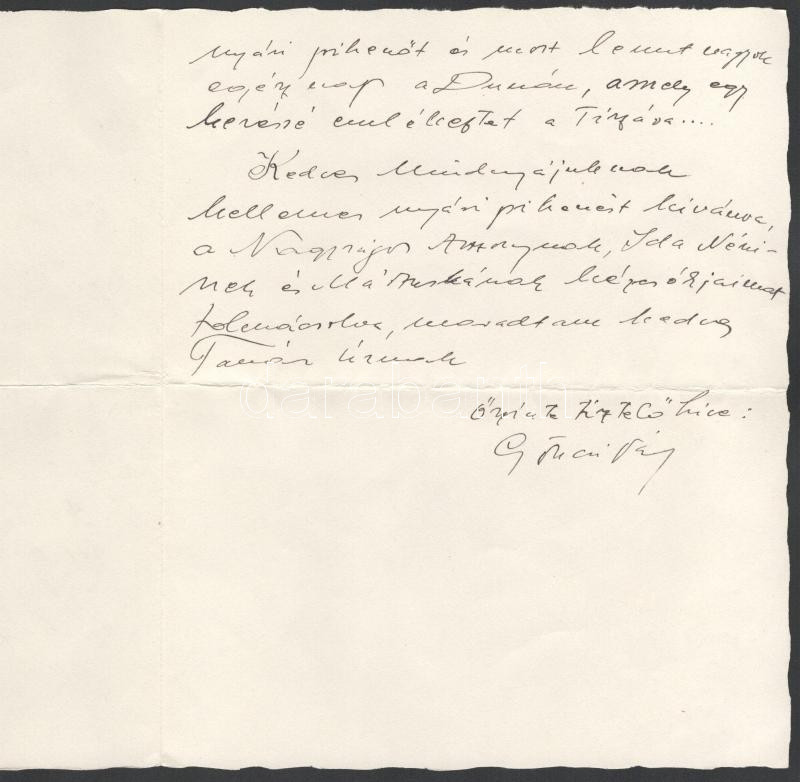 nyári pihenőt és most lennt vagyok
egész nap a Dunán, amely egy
kevéssé emlékeztet a Tiszára....
Kedves Mindnyájuknak
kellemes nyári pihenést kívánva,
a Nagyságos Asszonynak, Ida Néni-
nek és Máriskának kézcsókjaimat
tolmácsolva, maradtam kedves
Tanár Úrnak
darabanth
őszinte tisztelő híve: